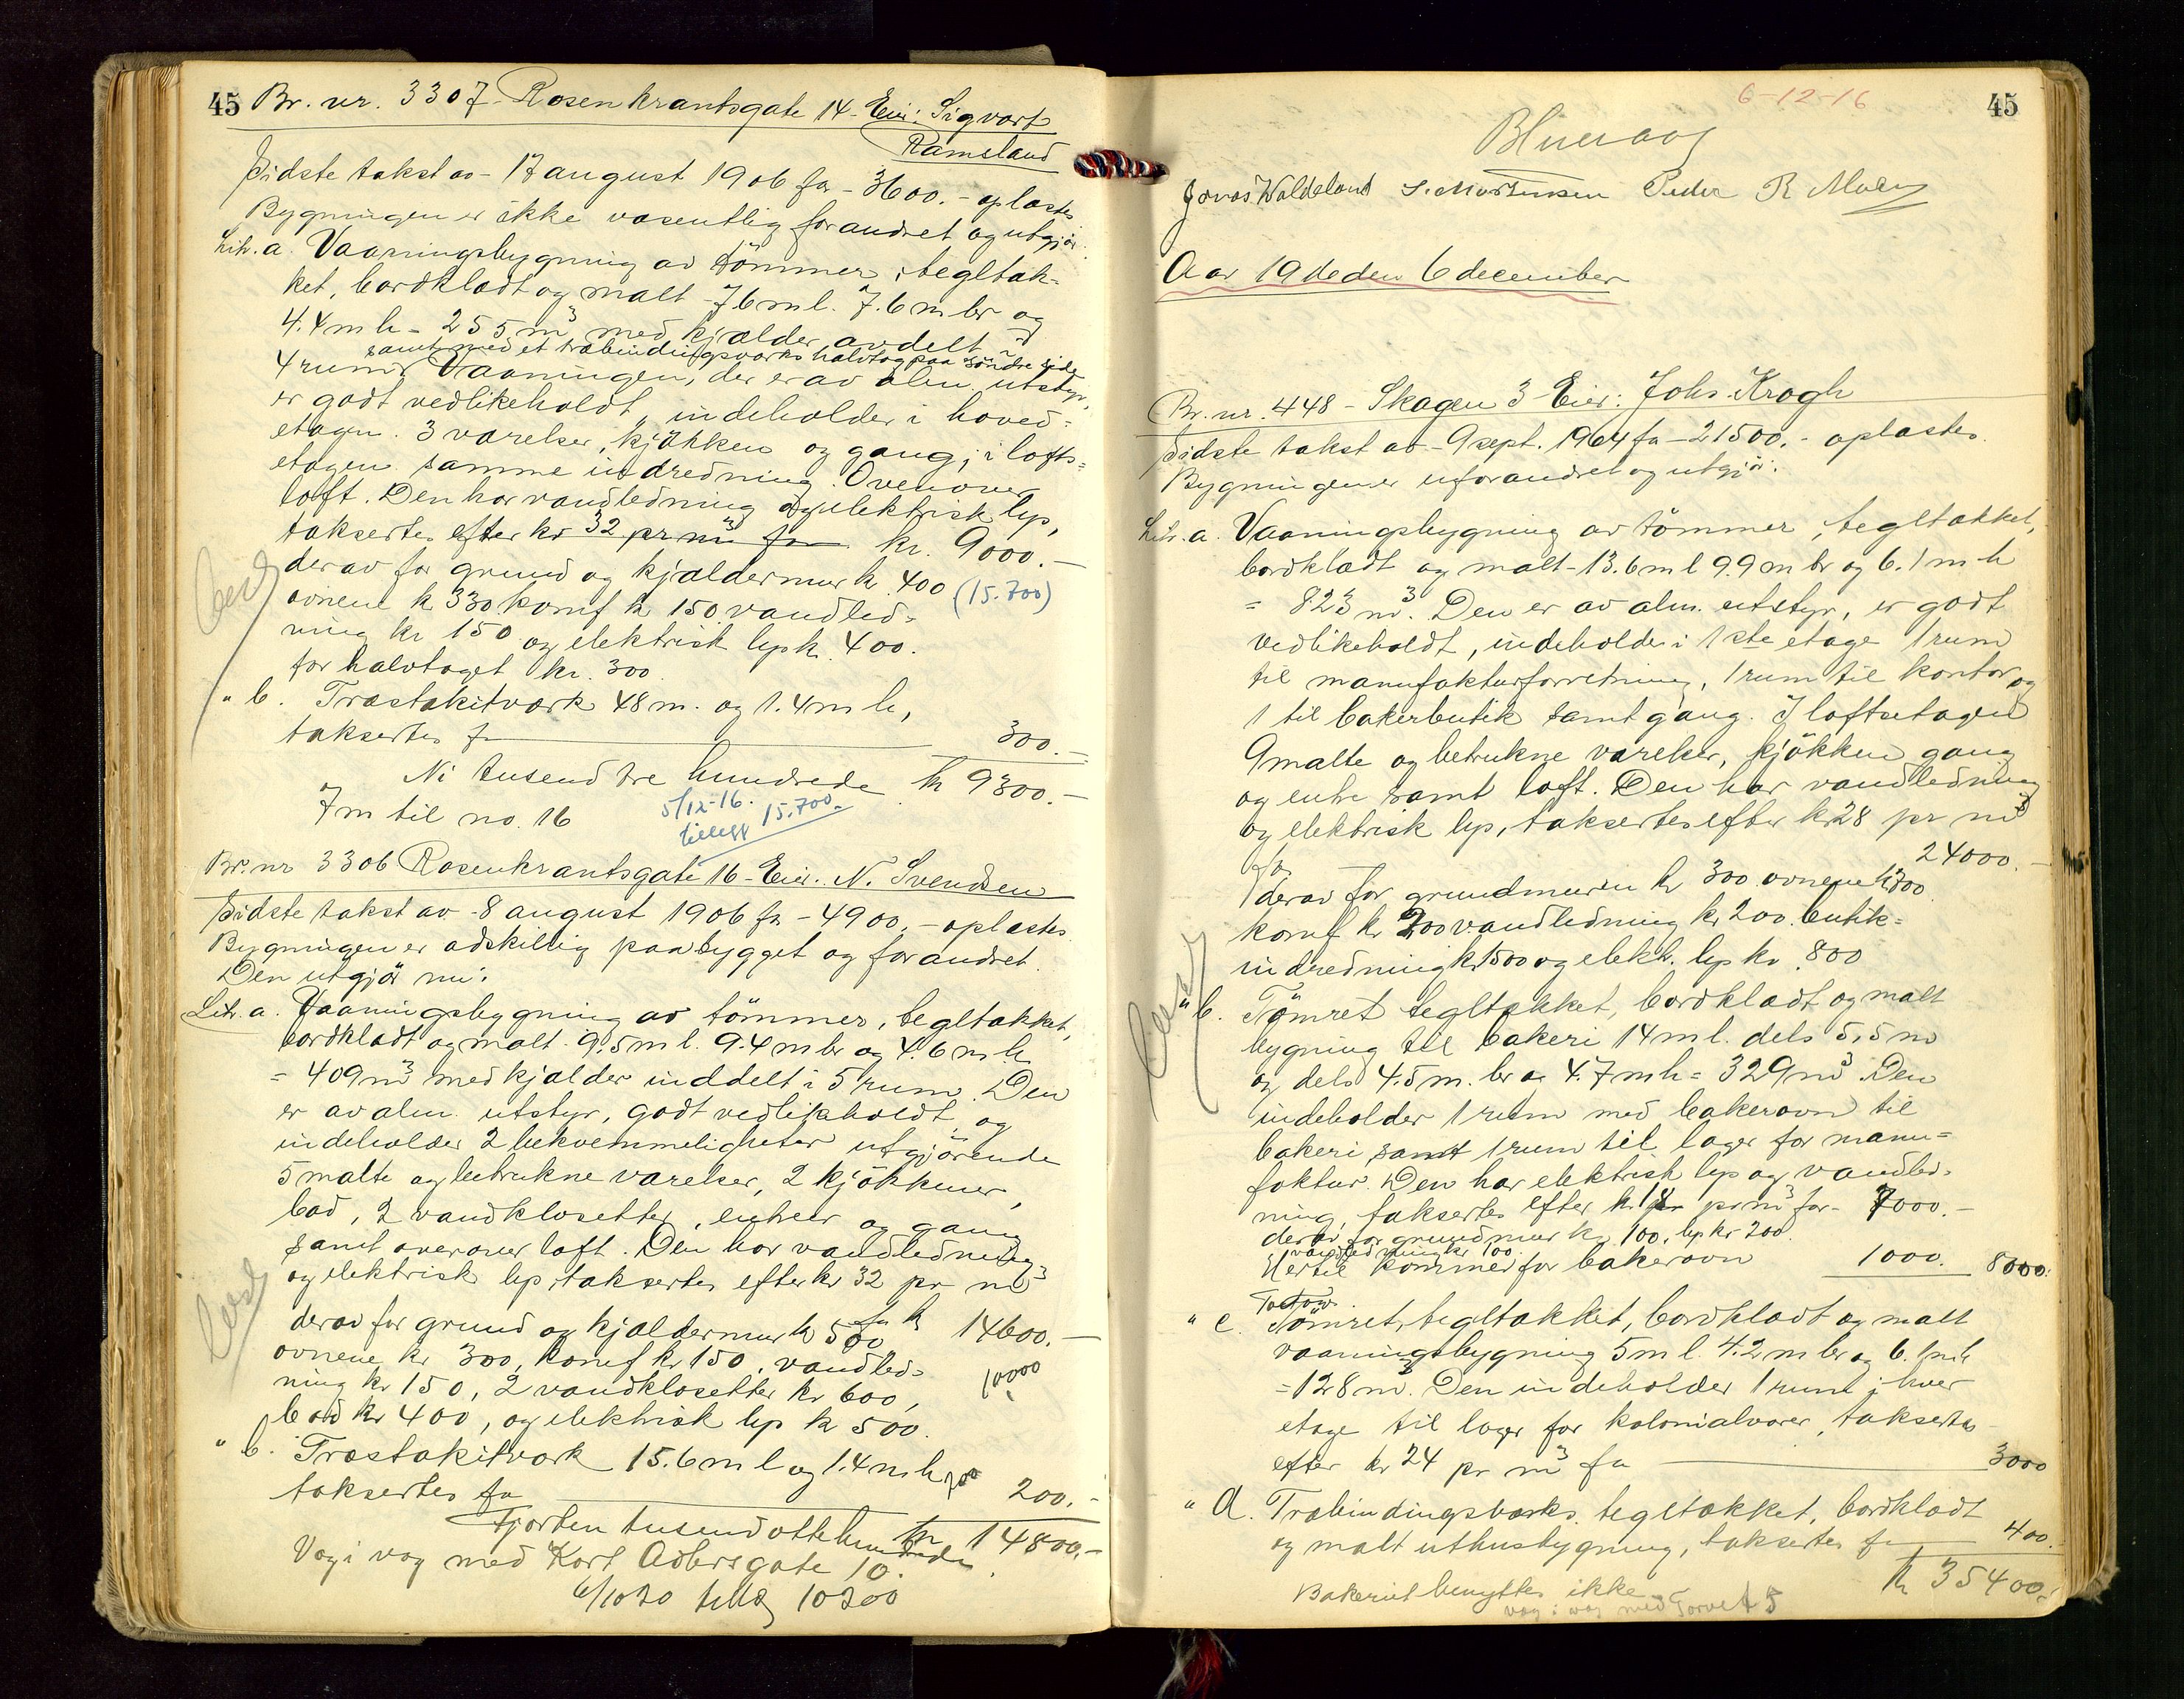 45 Br. nr. 3307 - Rosenkrantsgate 14 - Eier: Sigvart
Rameland
Sidste takst av - 17 august 1906 for - 3600. - oplæstes
Bygningen er ikke væsentlig forandret og utgjör:
Litr. a. Vaaningsbygning av tömmer, tegltæk-
ket, bordklædt og malt - 7.6 m l. 7.6 m br og
4.4 m h = 255 m³ med kjælder avdelt i
samt med et træbindingsværks halvtag paa söndre side
4 rum. Vaaningen, der er av alm. utstyr,
er godt vedlikeholdt, indeholder i hoved-
etagen 3 værelser, kjökken og gang; i lofts-
etagen samme indredning. Ovenover
loft. Den har vandledning og elektrisk lys,
taksertes efter kr 32 pr m³ for kr. 9000.-
derav for grund og kjældermur kr. 400 (15.700)
ovnene kr 330 komf kr 150 vandled-
ning kr 150 og elektrisk lys kr. 400.
for halvtaget kr. 300
" b. Træstakitværk 48 m. og 1.4 m h,
taksertes for 300.-
Ni tusend tre hundrede kr 9300.-
7 m til no. 16
5/12-16.
tillegg 15.700.-
Br. nr 3306 Rosenkrantsgate 16 - Eier. N. Svendsen
Sidste takst av - 8 august 1906 for - 4900. - oplæstes
Bygningen er adskillig paabygget og forandret.
Den utgjör nu:
Litr. a. Vaaningsbygning av tömmer, tegltækket,
bordklædt og malt - 9.5 m l. 9.4 m br og 4.6 m h
= 409 m³ med kjælder inddelt i 5 rum. Den
er av alm. utstyr, godt vedlikeholdt og
indeholder 2 bekvemmeligheter utgjörende
5 malte og betrukne værelser, 2 kjökkener,
bad, 2 vandklosetter, entreer og gang
samt overover loft. Den har vandledning
og elektrisk lys, taksertes efter kr 32 pr m³
for kr 14600.-
derav for grund og kjældermur kr 500
ovnene kr 300, komf kr 150, vandled- 10000
ning kr 150, 2 vandklosetter kr 600,
bad kr 400, og elektrisk lys kr 500.
" b. Træstakitværk 15.6 m l og 1.4 m h 200
taksertes for 200.-
Fjorten tusend ottehundrede kr 14800.-
Væg i væg med Kort Adlersgate 10.
6/10 20 tillæg 10200
6-12-16
45
Jonas Waldeland S. Mortensen Peder R Moley
Aar 19 de den 6 december
Br. nr. 448 - Skagen 3 - Eier: Johs. Krogh
Sidste takst av - 9 sept. 1904 for - 21500. - oplæstes
Bygningen er uforandret og utgjör:
Litr. a. Vaaningsbygning av tömmer, tegltækket,
bordklædt og malt - 13.6 m l 9.9 m br og 6.1 m h
= 823 m³. Den er av alm. utstyr, er godt
vedlikeholdt, indeholder i 1ste etage 1 rum
til manufakturforretning, 1 rum til kontor og
1 til bakerbutik samt gang. I loftsetagen
9 malte og betrukne værelser, kjökken gang
og entre samt loft. Den har vandledning
og elektrisk lys, taksertes efter kr 28 pr m³
for 24000.-
derav for grundmuren kr 300 ovnene kr 700
komf kr 200 vandledning kr 200. butik-
indredning kr 1500 og elektr. lys kr 800
" b. Tömret tegltækket, bordklædt og malt
bygning til bakeri 14 m l. dels 5,5 m
og dels 4.5 m. br og 4.7 m h = 329 m³. Den
indeholder 1 rum med bakerovn til
bakeri samt 1 rum til lager for manu-
faktur. Den har elektrisk lys og vandled-
ning, taksertes efter kr 18 pr m³ for - 7000.-
derav for grundmur kr 100, lys kr 200.
vandledning kr 100.
Hertil kommer for bakerovn 1000. 8000.
" c. Tömret, tegltækket, bordklædt og malt
vaaningsbygning 5 m l. 4.2 m br og 6.1 m h
= 128 m³. Den indeholder 1 rum i hver
etage til lager for kolonialvarer, taksertes
efter kr 24 pr m³ for 3000
" d. Træbindingsværks, tegltækket, bordklædt
og malt uthusbygning, taksertes for 400.
kr 35400.-
Bakeriet benyttes ikke
væg i væg med Torvet 5